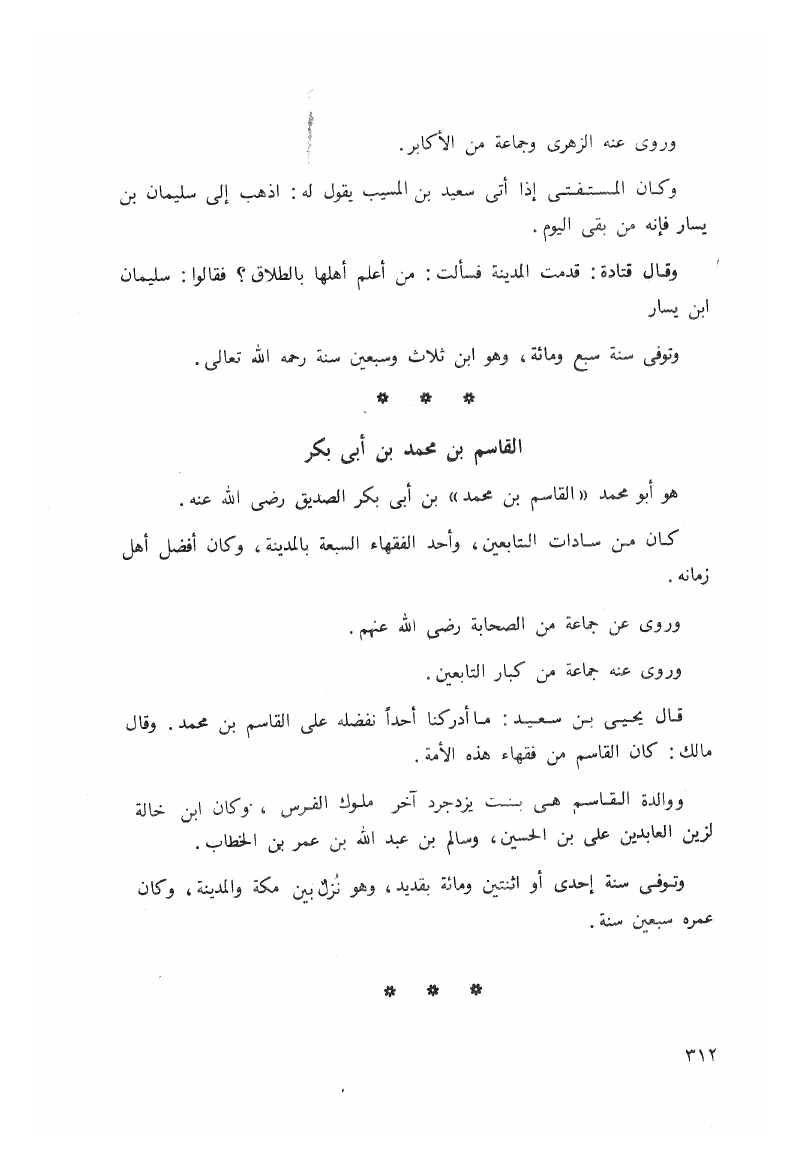 وروى عنه الزهرى وجماعة من الأكابر.
وكان المستفتى إذا أتى سعيد بن المسيب يقول له: اذهب إلى سليمان بن
يسار فإنه من بقى اليوم.
وقال قتادة: قدمت المدينة فسألت: من أعلم أهلها بالطلاق؟ فقالوا: سليمان
ابن يسار
وتوفى سنة سبع ومائة، وهو ابن ثلاث وسبعين سنة رحمه الله تعالى.
* * *
القاسم بن محمد بن أبى بكر
هو أبو محمد «القاسم بن محمد» بن أبى بكر الصديق رضى الله عنه.
كان من سادات التابعين، وأحد الفقهاء السبعة بالمدينة، وكان أفضل أهل
زمانه.
وروى عن جماعة من الصحابة رضى الله عنهم.
وروى عنه جماعة من كبار التابعين.
قال يحيى بن سعيد: ما أدركنا أحداً نفضله على القاسم بن محمد. وقال
مالك: كان القاسم من فقهاء هذه الأمة.
ووالدة القاسم هى بنت يزدجرد آخر ملوك الفرس، وكان ابن خالة
لزين العابدين على بن الحسين، وسالم بن عبد الله بن عمر بن الخطاب.
وتوفى سنة إحدى أو اثنتين ومائة بقديد، وهو نُزلٌ بين مكة والمدينة، وكان
عمره سبعين سنة.
* * *
٣١٢